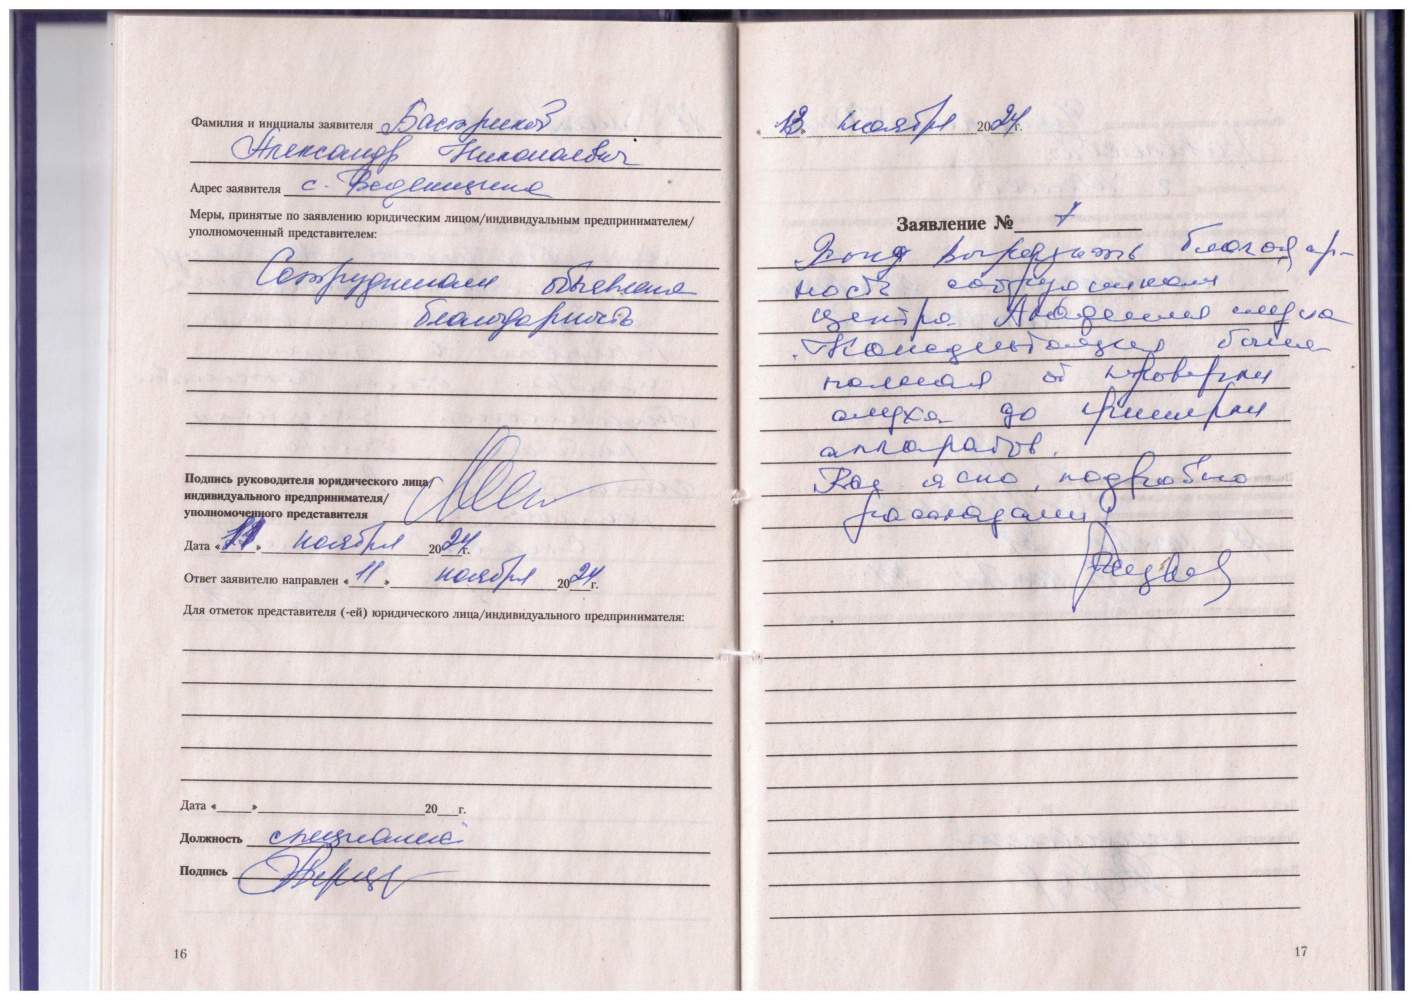 Фамилия и инициалы заявителя Бастриков
Александр Николаевич
Адрес заявителя с.
Меры, принятые по заявлению юридическим лицом/индивидуальным предпринимателем/
уполномоченный представителем:
Сотрудникам объявлена
благодарность
Подпись руководителя юридического лица/
индивидуального предпринимателя/
уполномоченного представителя
Дата «11» ноября 2024г.
Ответ заявителю направлен «11» ноября 2024г.
Для отметок представителя (-ей) юридического лица/индивидуального предпринимателя:
Дата «» 20 г.
Должность специалист
Подпись
16
ноября 2024г.
Заявление № 7
Хочу выразить благодар-
ность сотрудникам
центра Академия слуха
Консультация была
полная от проверки
слуха до
аппаратов.
Все ясно, подробно
рассказали!
17